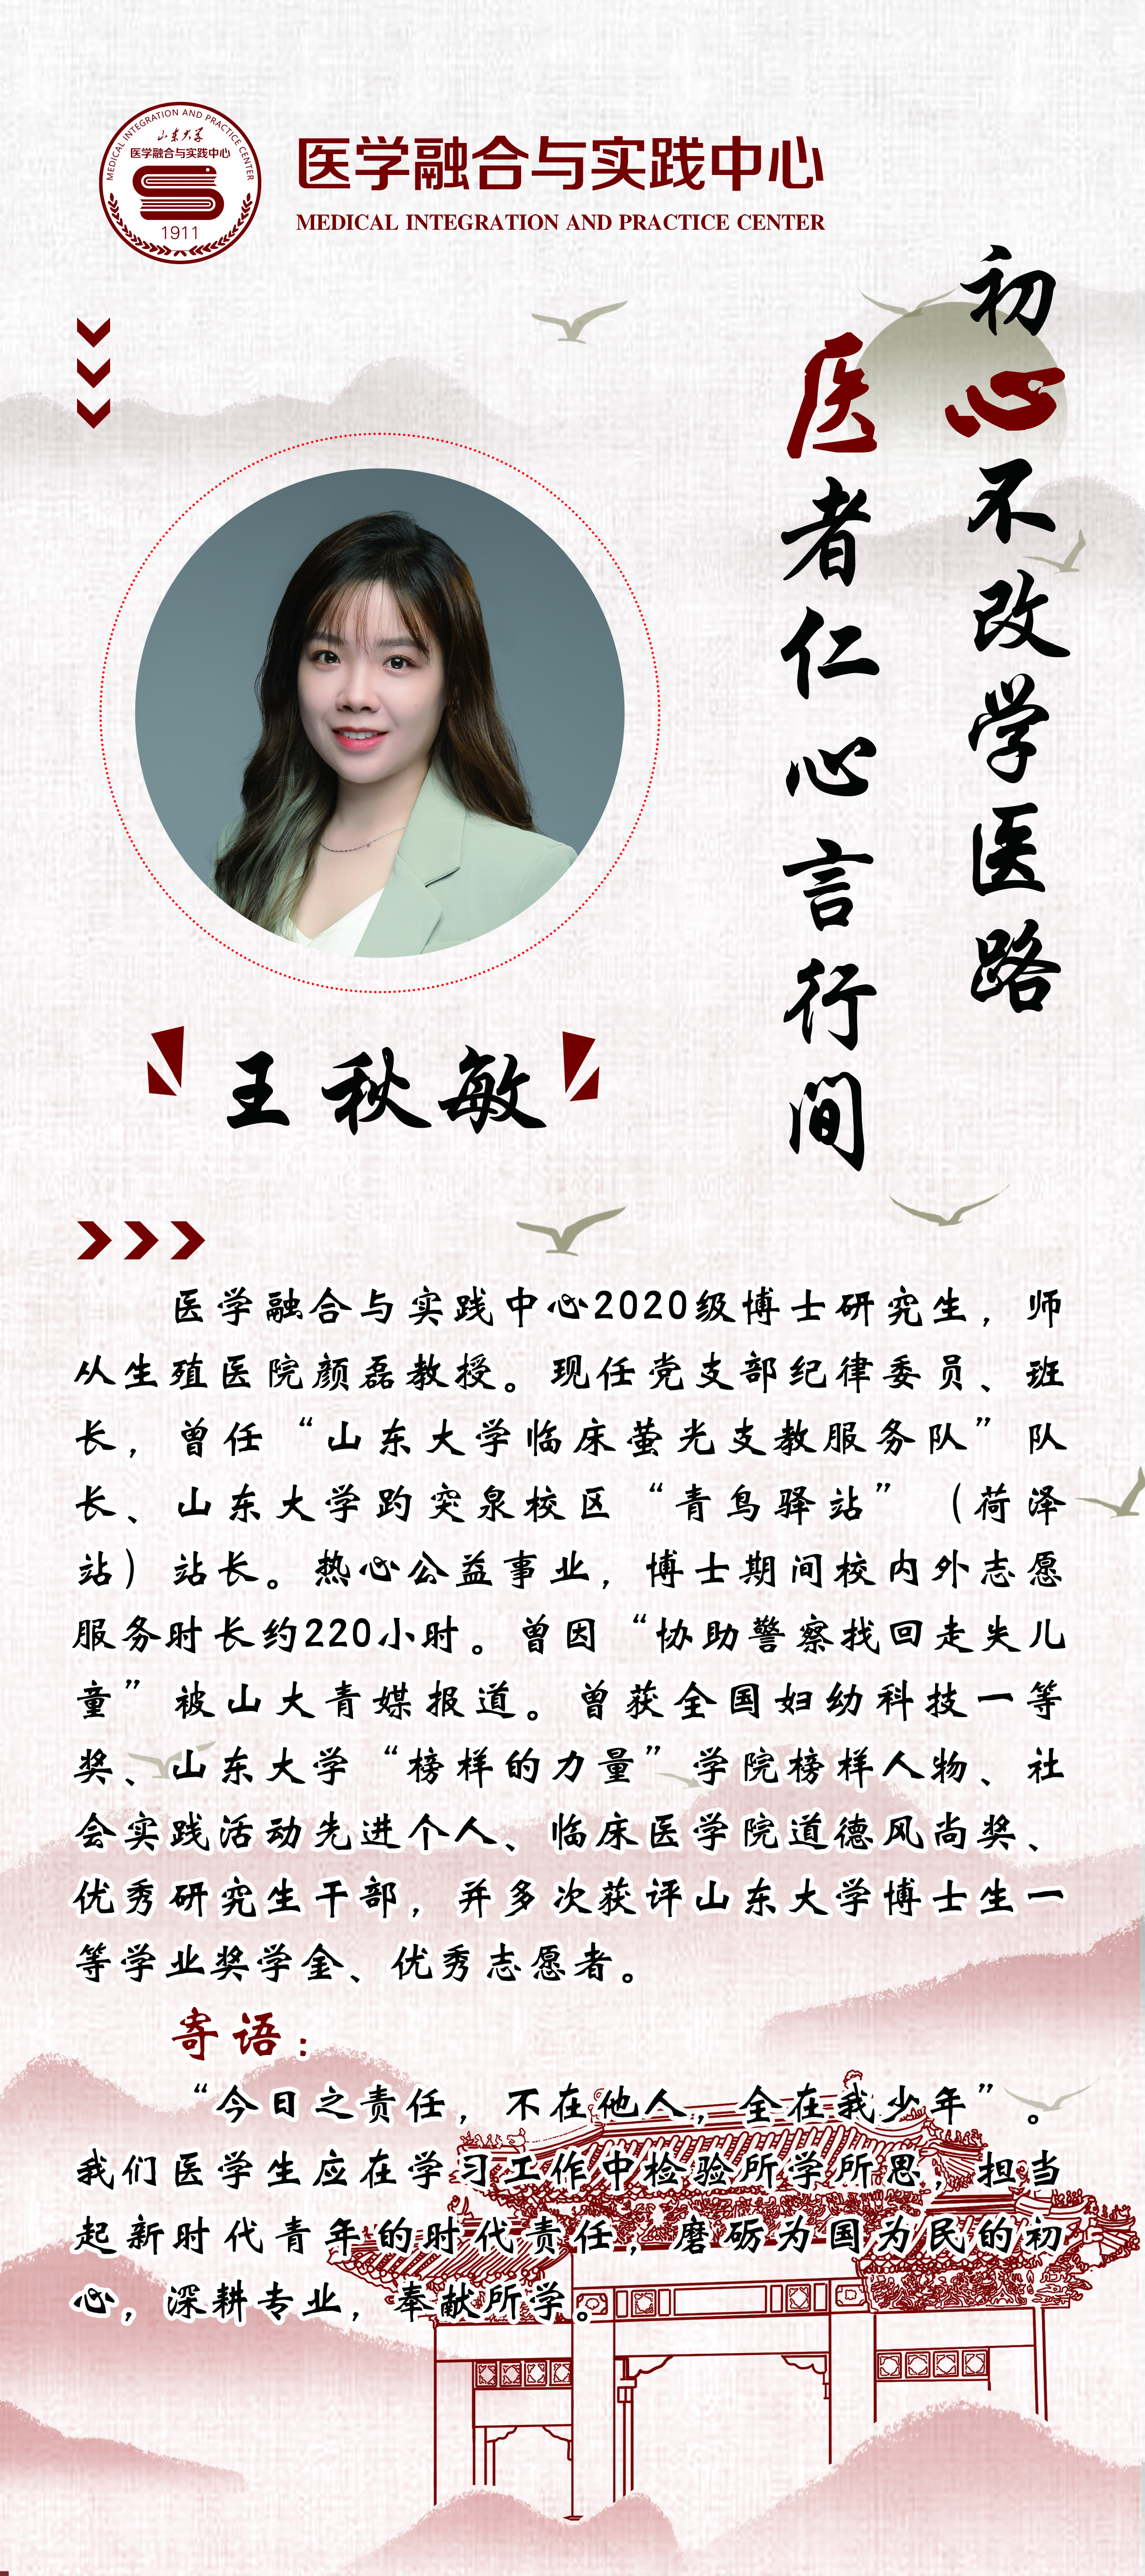 MEDICAL INTEGRATION AND PRACTICE CENTER
山东大学
医学融合与实践中心
1911
医学融合与实践中心
MEDICAL INTEGRATION AND PRACTICE CENTER
初心不改学医路
医者仁心言行间
王秋敏
医学融合与实践中心2020级博士研究生，师
从生殖医院颜磊教授。现任党支部纪律委员、班
长，曾任“山东大学临床萤光支教服务队”队
长、山东大学趵突泉校区“青鸟驿站”（荷泽
站）站长。热心公益事业，博士期间校内外志愿
服务时长约220小时。曾因“协助警察找回走失儿
童”被山大青媒报道。曾获全国妇幼科技一等
奖、山东大学“榜样的力量”学院榜样人物、社
会实践活动先进个人、临床医学院道德风尚奖、
优秀研究生干部，并多次获评山东大学博士生一
等学业奖学金、优秀志愿者。
寄语：
“今日之责任，不在他人，全在我少年”。
我们医学生应在学习工作中检验所学所思，担当
起新时代青年的时代责任，磨砺为国为民的初
心，深耕专业，奉献所学。